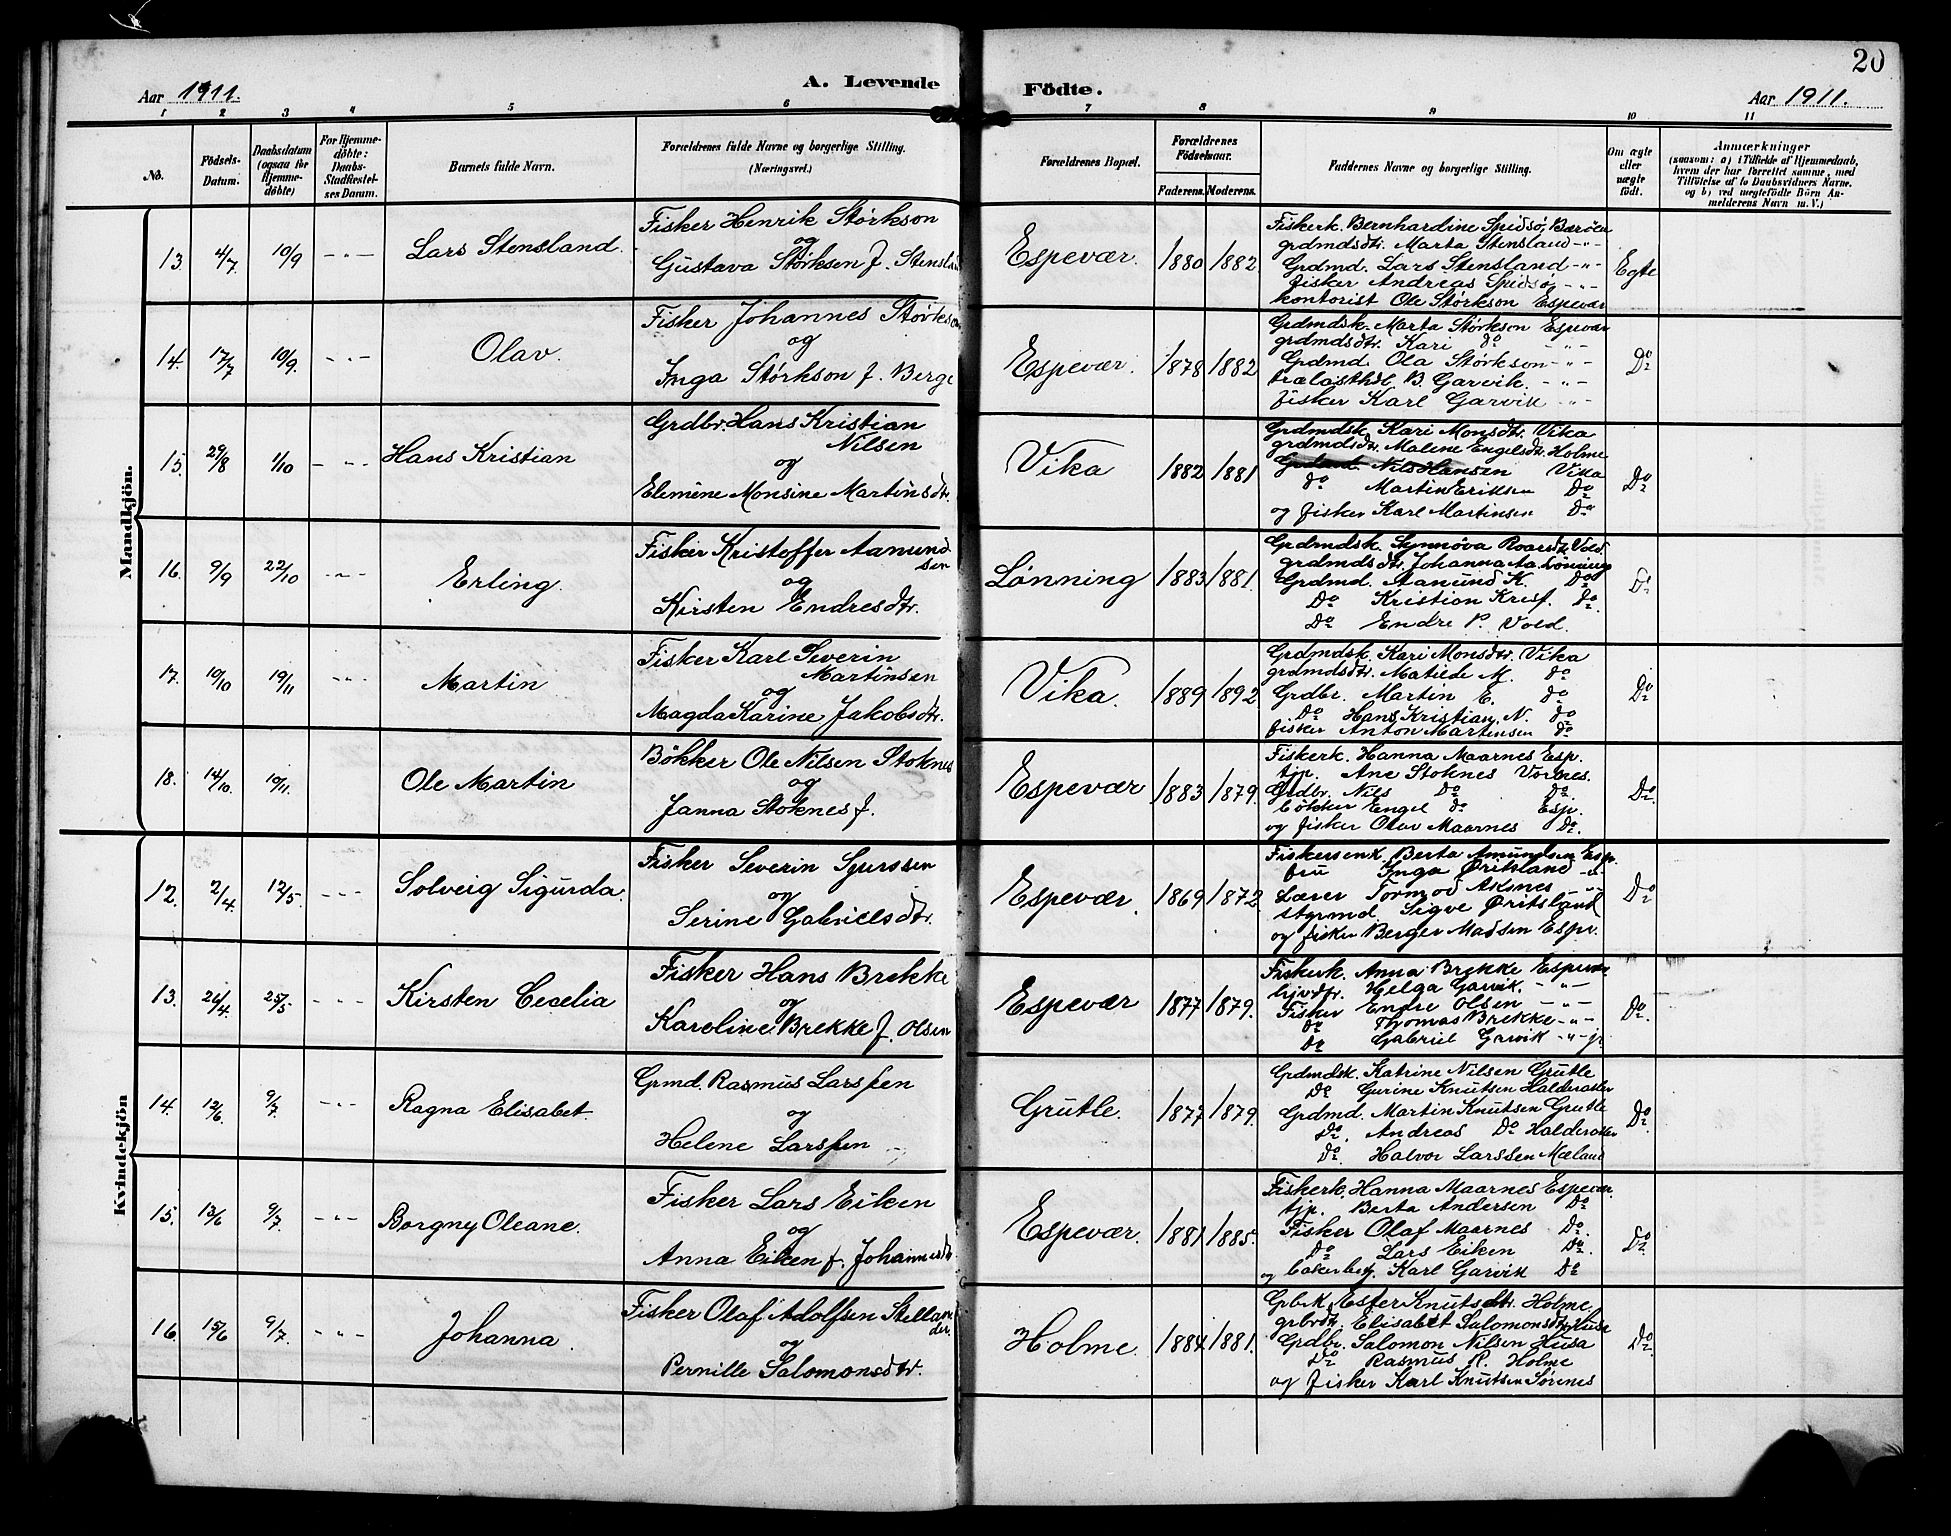 20
Aar 1911.
A. Levende
Födte.
Aar 1911.
1 2 3 4 5 6 7 8 9 10 11
No.
Födsels-
Datum.
Daabsdatum
(ogsaa for
Hjemme-
döbte)
For Hjemme-
döbte:
Daabs-
Stadfæstel-
ses Datum.
Barnets fulde Navn.
Forældrenes fulde Navne og borgerlige Stilling.
(Næringsvei.)
Forældrenes Bopæl.
Forældrenes
Födselsaar.
Faderens. Moderens.
Faddernes Navne og borgerlige Stilling.
Om ægte
eller
uægte
födt.
Anmærkninger
(saasom: a) i Tilfælde af Hjemmedaab,
hvem der har forrettet samme, med
Tilföielse af to Daabsvidners Navne,
og b) ved uægtefödte Börn An-
melderens Navn m. V.)
Mandkjön.
13. 4/7 10/9 - " - Lars Stensland.
Fisker Henrik Størkson
og
Gustava Størksen f. Stensland
Espevær. 1880 1882
Fiskerk. Bernhardine Spidsø, Børøen
grdmdsdtr. Marta Stensland - " -
Grdmd. Lars Stensland - " -
fisker Andreas Spidsø - " -
kontorist Ole Størkson Espevær
Egte
14. 17/7 10/9. - " - Olav.
Fisker Johannes Størkson
og
Inga Størkson f. Berge
Espevær. 1878 1882
Grdmdsk. Marta Størkson Espevær
grdmdsdtr. Kari do - " -
Grdmd. Ola Størkson - " -
B. Garvik. - " -
fisker Karl Garvik - " -
Do
15. 29/8 1/10 - " - Hans Kristian
Grdbr. Hans Kristian
Nilsen
og
Elemine Monsine Martinsdtr.
Vika 1882 1881
Grdmdsk. Kari Monsdtr. Vika
grdmdsdtr. Malene Engelsdtr. Holme
Grdmd. Nils Hansen Vika
do Martin Eriksen Do
og fisker Karl Martinsen Do
Do
16. 9/9 22/10 - " - Erling.
Fisker Kristoffer Aamund-
sen
og
Kirsten Endresdtr.
Lønning 1883 1881.
Grdmdsk. Synnøva Roarsdtr. Vold
grdmdsdtr. Johanna Aa. Lønning
Grdmd. Aamund K. Do
Do Kristian Krist. Do.
Do Endre P. Vold.
Do
17. 10/10 19/11 - " - Martin
Fisker Karl Severin
Martinsen
og
Magda Karine Jakobsdtr.
Vika. 1889 1892
Grdmdsk. Kari Monsdtr. Vika
grdmdsdtr. Matilde M. do
Grdbr. Martin E. do
Do Hans Kristian N. do
fisker Anton Martinsen do
Do
18. 14/10 19/11. Ole Martin
Bökker Ole Nilsen Stoknes
og
Janna Stoknes f.
Espevær 1883 1879.
Fiskerk. Hanna Maarnes Esp.
tjp. Ane Stoknes Vornes.
Grdbr. Nils Do Do.
bökker Engel do Esp.
og fisker Olav Maarnes Do.
Do.
Kvindekjön
12. 2/4. 12/5. - " - Solveig Sigurda.
Fisker Severin Sjurssen
og
Serine Gabrielsdtr.
Espevær. 1869 1872
Fiskersenk. Berta Amundsen Esp.
fru Inga Øritsland - " -
Lærer Tormod Aksnes - " -
styrmd. Sigve Øritsland
og fisker Berger Madsen Espv.
Do
13. 26/4. 25/5 - " - Kirsten Cecelia
Fisker Hans Brekke
og
Karoline Brekke f. Olsen
Espevær 1877 1879.
Fiskerk. Anna Brekke Espevær
Helga Garvik. - " -
Fisker Endre Olsen - " -
do Thomas Brekke - " -
Do Gabriel Garvik - " -
Do.
14. 12/6. 9/7. - " - Ragna Elisabet
Grmd. Rasmus Larssen
og
Helene Larssen
Grutle. 1877 1879.
Grdmdsk. Katrine Nilsen Grutle
Do Gurine Knutsen Halderaker
Grdmd. Martin Knutsen Grutle
Do. Andreas Do Halderaker
Do. Halvor Larssen Mæland
Do.
15. 13/6 9/7. - " - Borgny Oleane.
Fisker Lars Eiken
og
Anna Eiken f. Johannesdtr
Espevær. 1881 1885.
Fiskerk. Hanna Maarnes Espevær.
tjp. Berta Andersen Do
Fisker Olaf Maarnes Do.
Do Lars Eiken Do.
og Karl Garvik Do
Do.
16. 15/6 9/7. - " - Johanna.
Fisker Olaf Adolfsen
og
Pernille Salomonsdtr.
Holme. 1884 1881.
Grbrk. Ester Knutsdtr. Holme.
grbrdtr. Elisabet Salomonsdtr. Husa
Grdbr. Salomon Nilsen Husa
Do Rasmus R. Holme
og fisker Karl Knutsen Sørenes
Do.